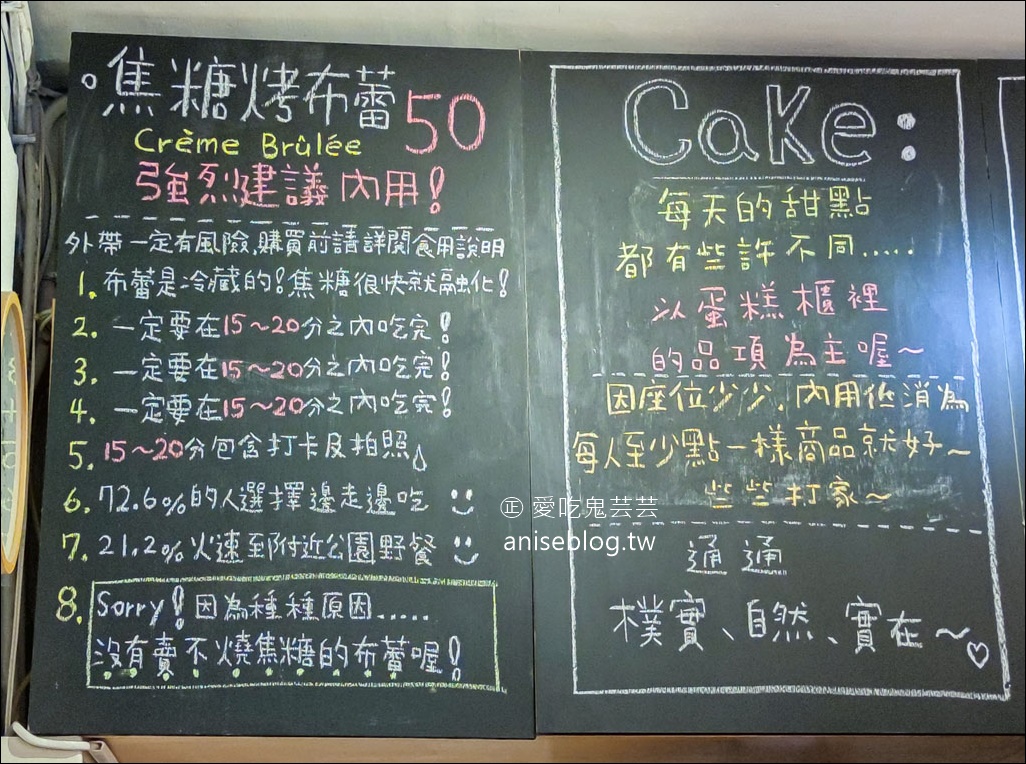 。焦糖烤布蕾 50
Crème Brûlée
強烈建議內用!
外帶一定有風險,購買前請詳閱食用說明
1. 布蕾是冷藏的!焦糖很快就融化!
2. 一定要在15~20分之內吃完!
3. 一定要在15~20分之內吃完!
4. 一定要在15~20分之內吃完!
5. 15~20分包含打卡及拍照
6. 72.6%的人選擇邊走邊吃
7. 21.2%火速到附近公園野餐
8. Sorry!因為種種原因.....
沒有賣不燒焦糖的布蕾喔!
Cake:
每天的甜點
都有些許不同.....
以蛋糕櫃裡
的品項為主喔~
因座位少少.內用低消為
每人至少點一樣商品就好~
些些打家~
通通
樸實、自然、實在~♡
正 愛吃鬼芸芸
aniseblog.tw